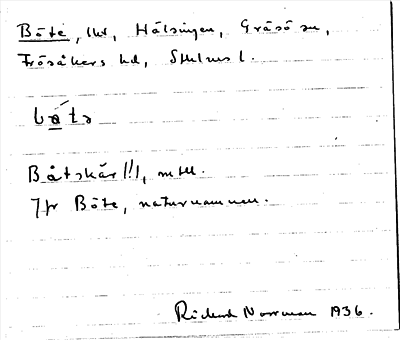 Böte, lht, Hälsingen, Gräsö sn,
Frösåkers hd, Sthlms l.
båtə
Båtskär !/1, mtbl.
Jfr Böte, naturnamnen.
Rickard Norrman 1936.